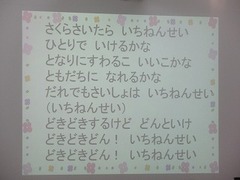 さくらさいたら いちねんせい
ひとりで いけるかな
となりにすわるこ いいこかな
ともだちに なれるかな
だれでもさいしょは いちねんせい
(いちねんせい)
どきどきするけど どんといけ
どきどきどん! いちねんせい
どきどきどん! いちねんせい